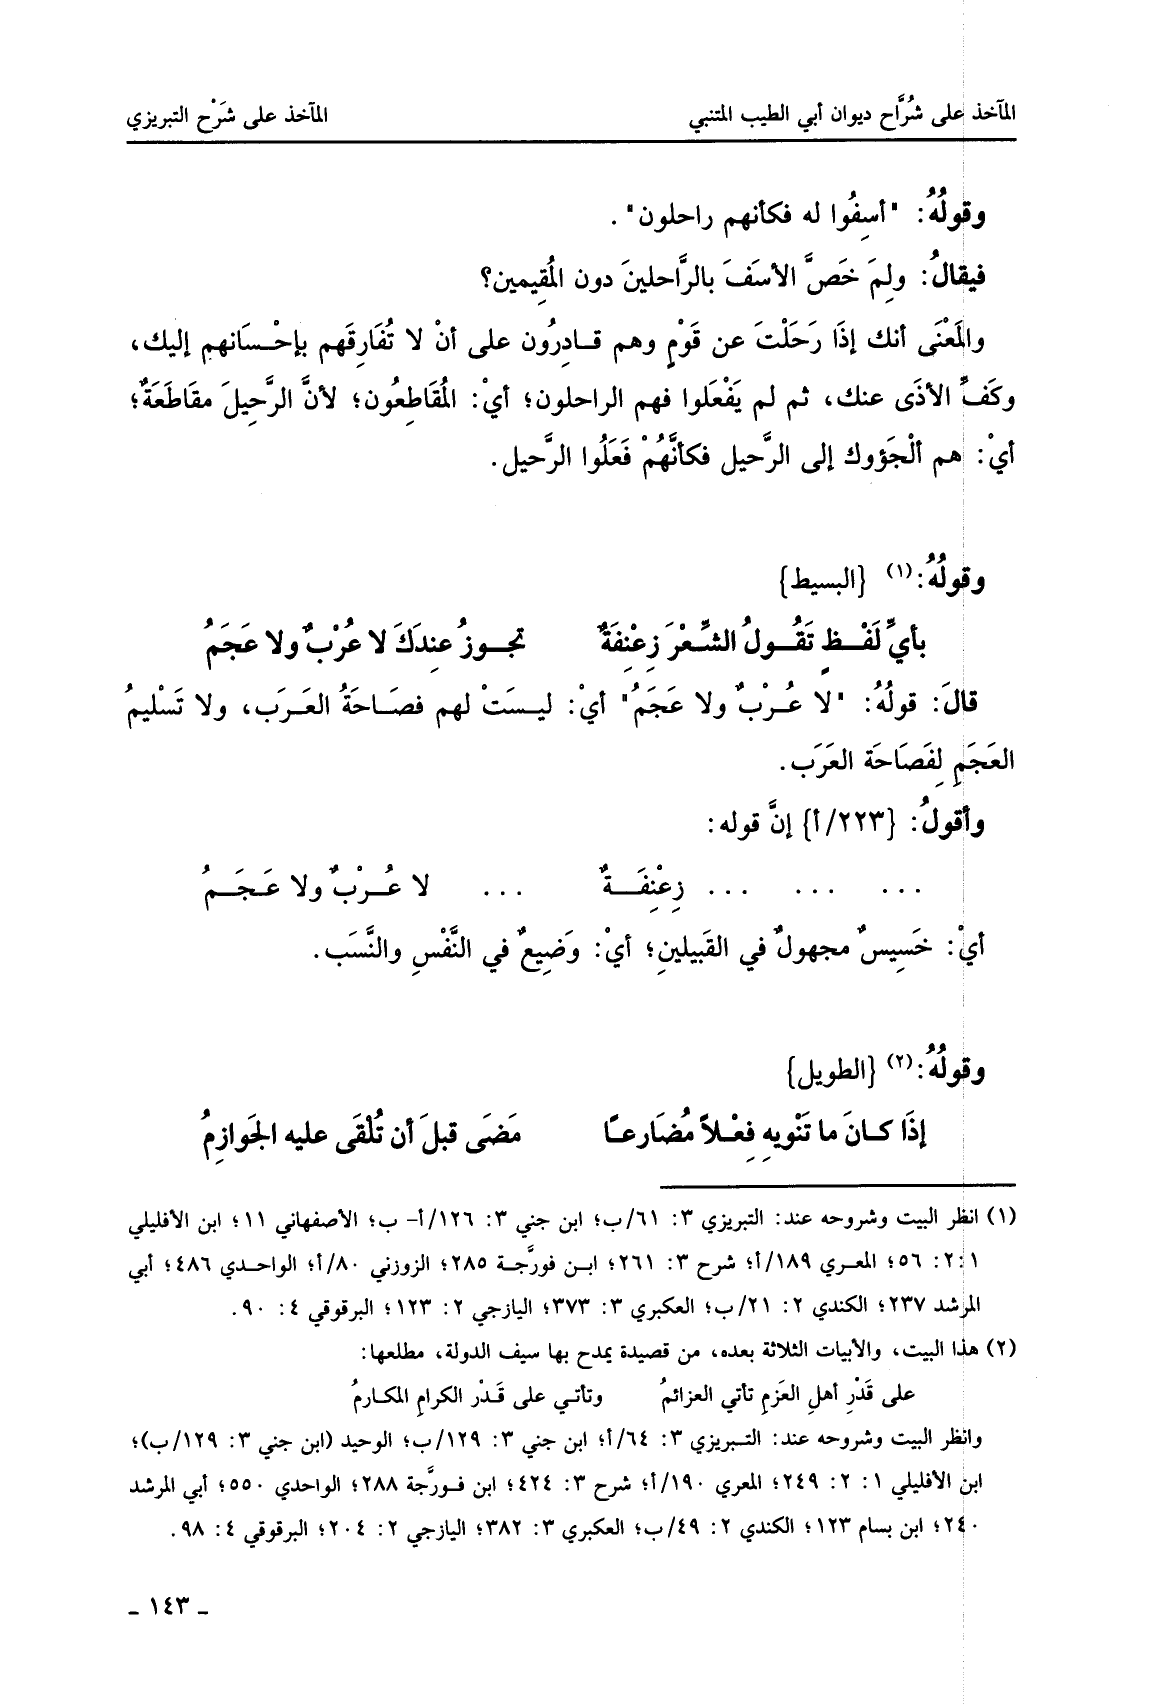 المآخذ على شُرَّاح ديوان أبي الطيب المتنبي المآخذ على شَرْح التبريزي
وقولُهُ: "أسِفُوا له فكأنهم راحلون".
فيقالُ: ولِمَ خَصَّ الأسَفَ بالرَّاحلينَ دون المُقِيمين؟
والمَعْنَى أنك إذَا رَحَلْتَ عن قَوْمٍ وهم قـادِرُون على أنْ لا تُفَارِقَهم بإحْـسَانهم إليك،
وكَفِّ الأذَى عنك، ثم لم يَفْعَلوا فهم الراحلون؛ أيْ: المُقَاطِعُون؛ لأنَّ الرَّحِيلَ مقَاطَعَةٌ؛
أيْ: هم ألْجَؤوك إلى الرَّحيل فكأنَّهُمْ فَعَلُوا الرَّحيل.
وقولُهُ:(١) {البسيط}
بأيِّ لَفْـظٍ تَقُـولُ الشِّـعْرَ زِعْنِفَةٌ تجـوزُ عِندَكَ لا عُرْبٌ ولا عَجَمُ
قالَ: قولُهُ: "لا عُـرْبٌ ولا عَجَمُ" أيْ: ليـسَتْ لهم فصَـاحَةُ العَـرَب، ولا تَسْليمُ
العَجَمِ لِفَصَاحَة العَرَب.
وأقولُ: {٢٢٣/أ} إنَّ قوله:
... ... ... زِعْنِفَـــةٌ ... لا عُــرْبٌ ولا عَـجَـمُ
أيْ: خَسِيسٌ مجهولٌ في القَبيلينِ؛ أيْ: وَضِيعٌ في النَّفْسِ والنَّسَب.
وقولُهُ:(٢) {الطويل}
إذَا كـانَ ما تَنْوِيهِ فِعْـلاً مُضَارعـًا مَضَى قبلَ أن تُلْقَى عليه الجَوازِمُ
(١) انظر البيت وشروحه عند: التبريزي ٣: ٦١/ب؛ ابن جني ٣: ١٢٦/أ- ب؛ الأصفهاني ١١؛ ابن الأفليلي
٢:١: ٥٦؛ المعـري ١٨٩/أ؛ شرح ٣: ٢٦١؛ ابـن فورَّجـة ٢٨٥؛ الزوزني ٨٠/أ؛ الواحـدي ٤٨٦؛ أبي
المرشد ٢٣٧؛ الكندي ٢: ٢١/ب؛ العكبري ٣: ٣٧٣؛ اليازجي ٢: ١٢٣؛ البرقوقي ٤: ٩٠.
(٢) هذا البيت، والأبيات الثلاثة بعده، من قصيدة يمدح بها سيف الدولة، مطلعها:
على قَدْرِ أهلِ العَزمِ تأتي العزائمُ وتأتـي على قَـدْر الكرامِ المكـارمُ
وانظر البيت وشروحه عند: التـبريزي ٣: ٦٤/أ؛ ابن جني ٣: ١٢٩/ب؛ الوحيد (ابن جني ٣: ١٢٩/ب)؛
ابن الأفليلي ١: ٢: ٢٤٩؛ المعري ١٩٠/أ؛ شرح ٣: ٤٢٤؛ ابن فـورَّجة ٢٨٨؛ الواحدي ٥٥٠؛ أبي المرشد
٢٤٠؛ ابن بسام ١٢٣؛ الكندي ٢: ٤٩/ب؛ العكبري ٣: ٣٨٢؛ اليازجي ٢: ٢٠٤؛ البرقوقي ٤: ٩٨.
- ١٤٣ -